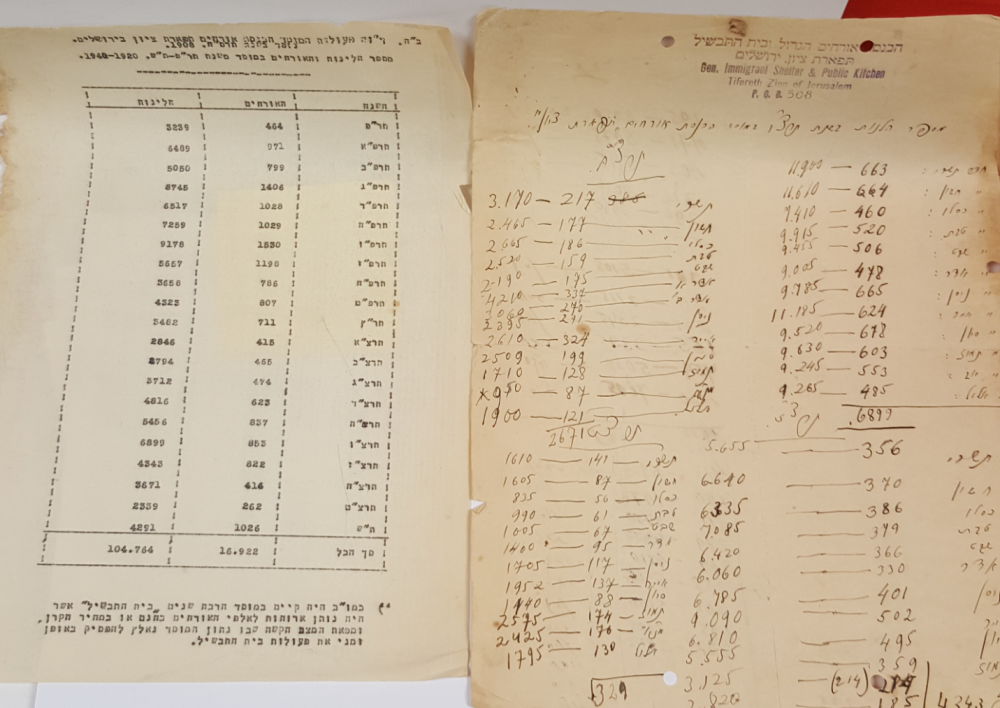 ב"ה. דו"ח פעולות המוסד הכנסת אורחים תפארת ציון בירושלים.
נוסד בשנת תרס"ח. 1908.
מספר הלינות והאורחים במוסד משנת תר"פ-ה"ש. 1940-1920.
השנה האורחים הלינות
תר"פ 464 3239
תרפ"א 971 6489
תרפ"ב 799 5050
תרפ"ג 1406 8745
תרפ"ד 1028 6517
תרפ"ה 1029 7259
תרפ"ו 1530 9178
תרפ"ז 1198 5657
תרפ"ח 786 3658
תרפ"ט 807 4323
תר"ץ 711 5482
תרצ"א 415 2846
תרצ"ב 465 2794
תרצ"ג 474 3712
תרצ"ד 623 4816
תרצ"ה 837 5456
תרצ"ו 853 6899
תרצ"ז 822 4343
תרצ"ח 414 3671
תרצ"ט 262 2339
ה"ש 1026 4291
סך הכל 16.922 104.764
כמו"כ היה קיים במוסד הרבה שנים "בית התבשיל" אשר
היה נותן ארוחות לאלפי האורחים בחנם או במחיר הקרן,
ומפאת המצב הקשה שבו נתון המוסד נאלץ להפסיק באופן
זמני את פעולות בית התבשיל.
הכנסת אורחים הגדול ובית התבשיל
תפארת ציון, ירושלים
Gen. Immigrant Shelter & Public Kitchen
Tifereth Zion of Jerusalem
P. O. B. 508
מספר הלנות בשנת תרצ"ו במוסד הכנסת אורחים תפארת ציון
663 — 11.980
חשון 664 — 11.610
כסלו 460 — 7.410
טבת 520 — 9.915
שבט 506 — 9.455
אדר 478 — 9.005
ניסן 665 — 9.785
624 — 11.185
סיון 678 — 9.520
תמוז 603 — 9.630
אב 553 — 9.245
אלול 485 — 9.265
6899
תשרי 217 — 3.170
חשון 177 — 2.465
כסלו 186 — 2.665
טבת 159 — 2.520
שבט 175 — 2.190
אדר א 337 — 4210
אדר ב 270 — 3060
ניסן 241 — 3395
אייר 324 — 2610
סיון 199 — 2509
תמוז 128 — 1710
87
אלול 121 — 1900
2671
תשרי 356 — 5.655
חשון 370 — 6.640
כסלו 386 — 6.335
טבת 379 — 7.085
שבט 366 — 6.420
אדר 330 — 6.060
ניסן 401 — 6.785
502 — 9.090
סיון 495 — 6.810
תמוז 359 — 5.555
(214) 3.125
185
תשרי 141 — 1610
חשון 87 — 1605
כסלו 56 — 835
טבת 61 — 990
שבט 67 — 1005
אדר 95 — 1400
ניסן 117 — 1705
אייר 137 — 1952
סיון 88 — 1440
תמוז 174 — 2575
176 — 2425
אלול 130 — 1795
1329